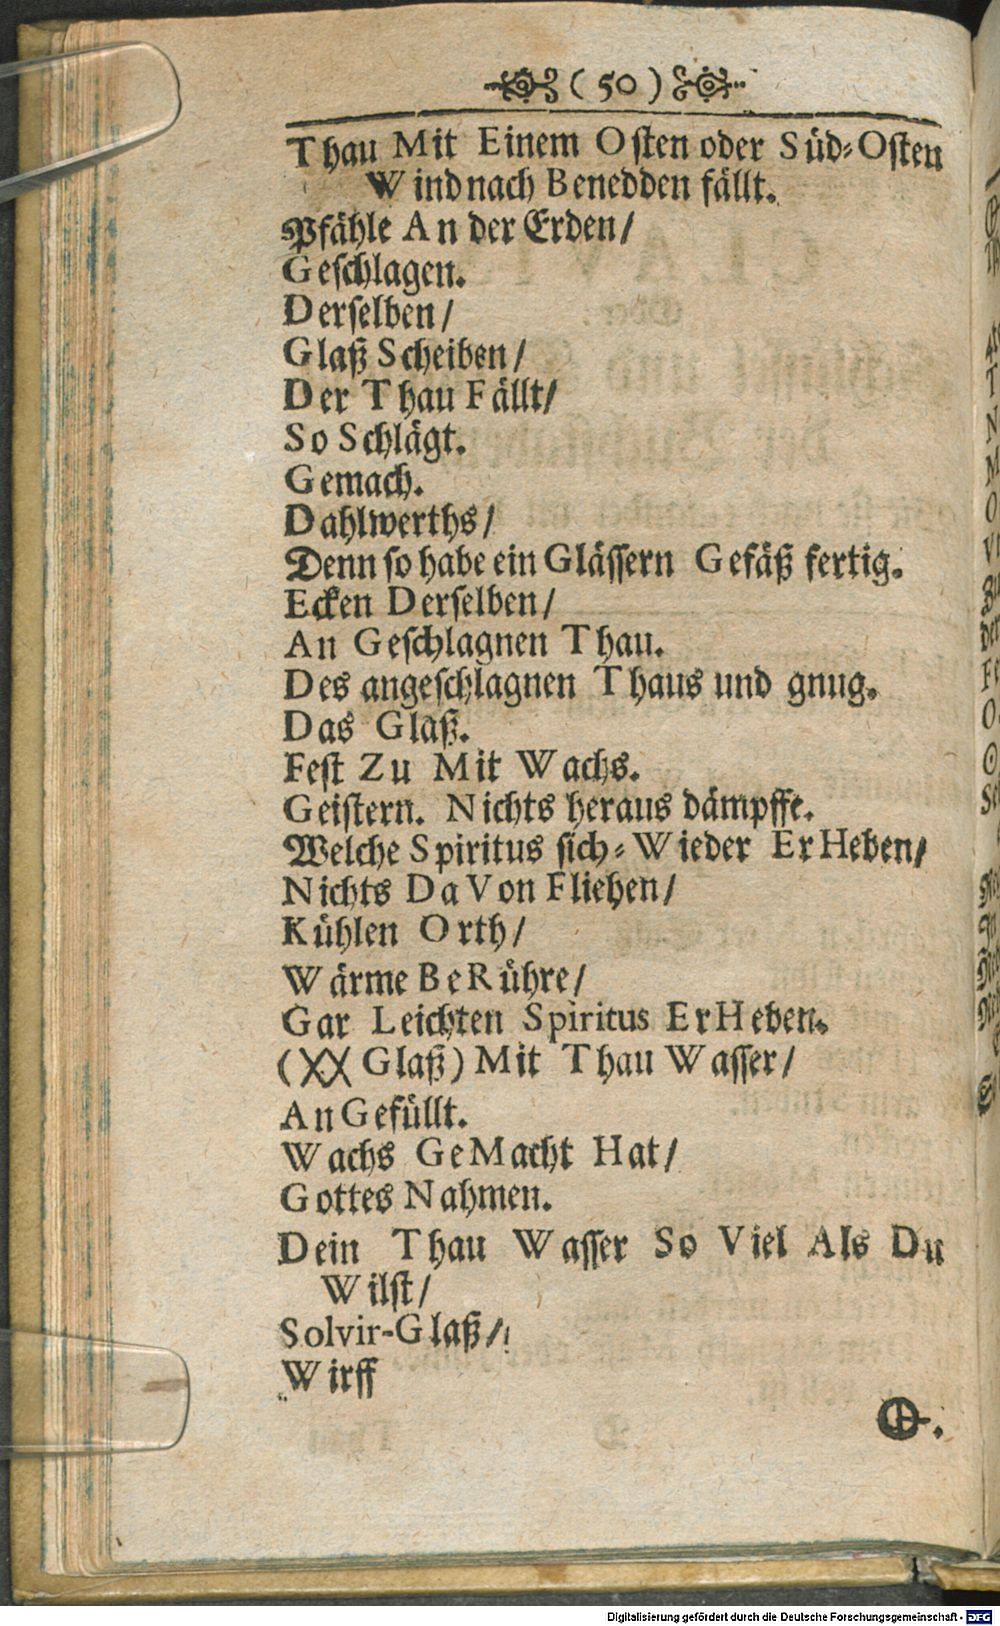 ( 50 )
Thau Mit Einem Osten oder Süd-Osten
Wind nach Benedden fällt.
Pfähle An der Erden/
Geschlagen.
Derselben/
Glaß Scheiben/
Der Thau Fällt/
So Schlägt.
Gemach.
Dahlwerths/
Denn so habe ein Glässern Gefäß fertig.
Ecken Derselben/
An Geschlagnen Thau.
Des angeschlagnen Thaus und gnug.
Das Glaß.
Fest Zu Mit Wachs.
Geistern. Nichts heraus dämpffe.
Welche Spiritus sich-Wieder ErHeben/
Nichts DaVon Fliehen/
Kühlen Orth/
Wärme BeRühre/
Gar Leichten Spiritus ErHeben.
(XX Glaß) Mit Thau Wasser/
AnGefüllt.
Wachs GeMacht Hat/
Gottes Nahmen.
Dein Thau Wasser So Viel Als Du
Wilst/
Solvir-Glaß/
Wirff
Digitalisierung gefördert durch die Deutsche Forschungsgemeinschaft - DFG